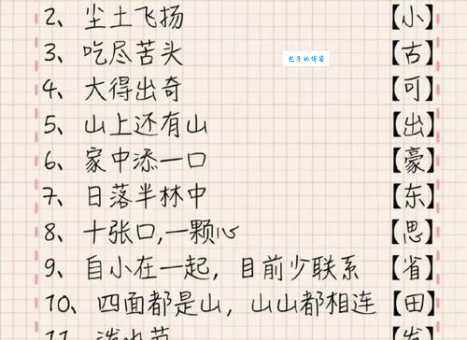 2、尘土飞扬 【小】
3、吃尽苦头 【古】
4、大得出奇 【可】
5、山上还有山 【出】
6、家中添一口 【豪】
7、日落半林中 【东】
8、十张口,一颗心 【思】
9、自小在一起，目前少联系 【省】
10、四面都是山，山山都相连 【田】